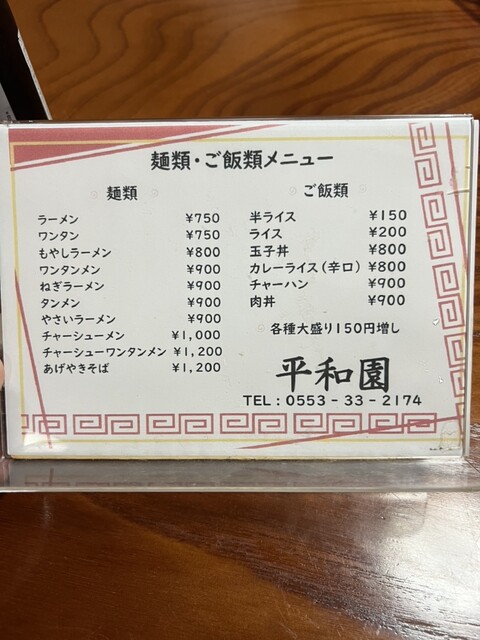 麺類・ご飯類メニュー
麺類
ラーメン ¥750
ワンタン ¥750
もやしラーメン ¥800
ワンタンメン ¥900
ねぎラーメン ¥900
タンメン ¥900
やさいラーメン ¥900
チャーシューメン ¥1,000
チャーシューワンタンメン ¥1,200
あげやきそば ¥1,200
ご飯類
半ライス ¥150
ライス ¥200
玉子丼 ¥800
カレーライス(辛口) ¥800
チャーハン ¥900
肉丼 ¥900
各種大盛り150円増し
平和園
TEL:0553-33-2174